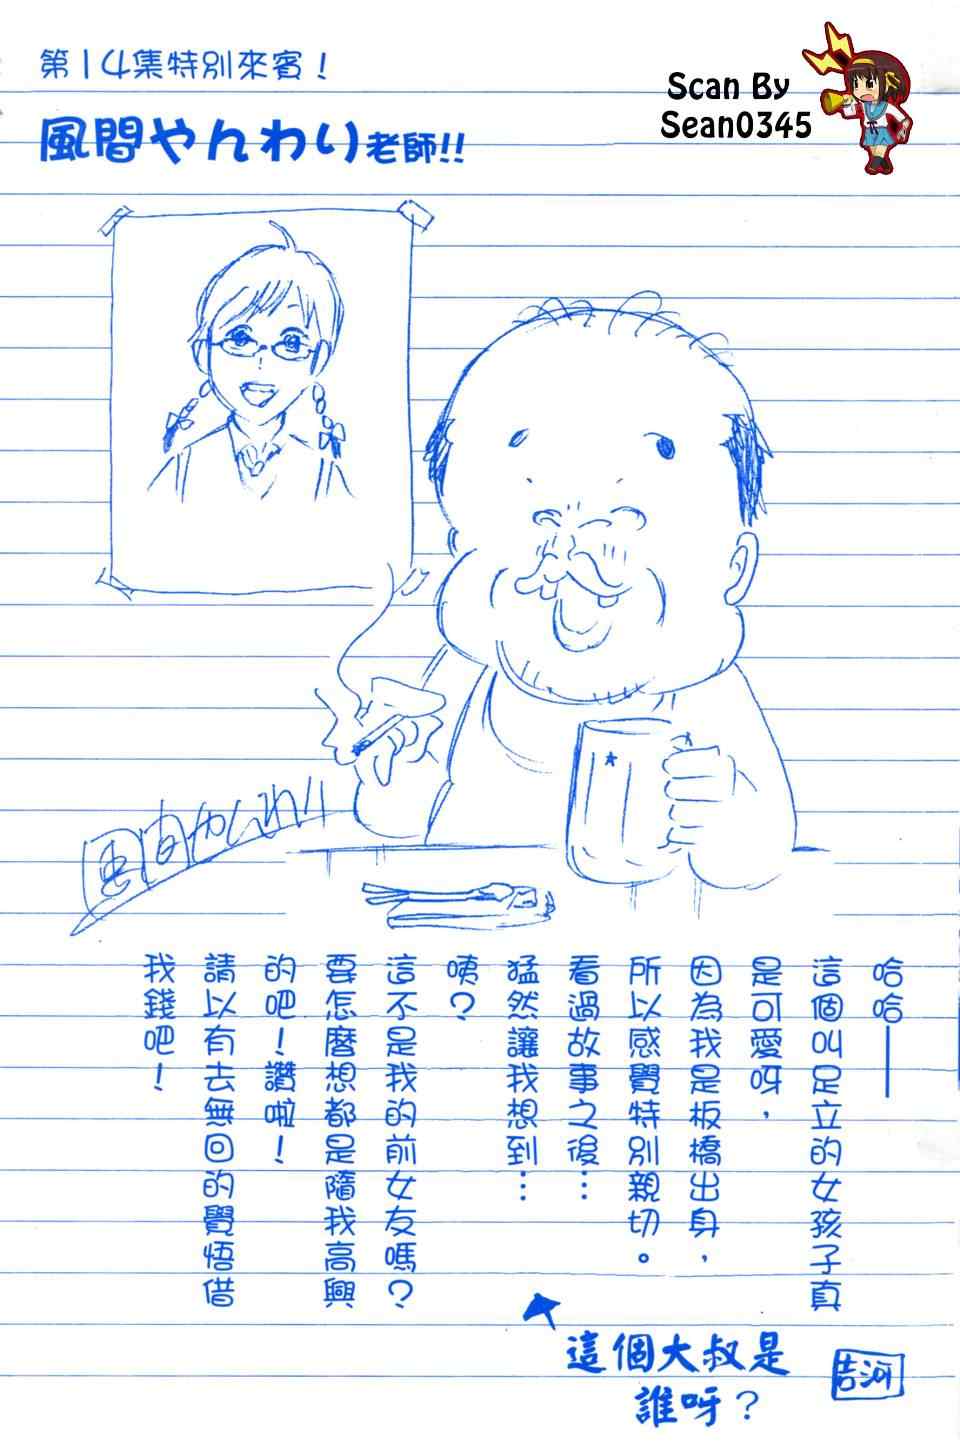 第14集特別來賓！
風間やんわり老師!!
Scan By
Sean0345
風间やんわり
哈哈——
這個叫足立的女孩子真
是可愛呀，
因為我是板橋出身，
所以感覺特別親切。
看過故事之後…
猛然讓我想到…
咦？
這不是我的前女友嗎？
要怎麼想都是隨我高興
的吧！讚啦！
請以有去無回的覺悟借
我錢吧！
這個大叔是
誰呀？
吉河